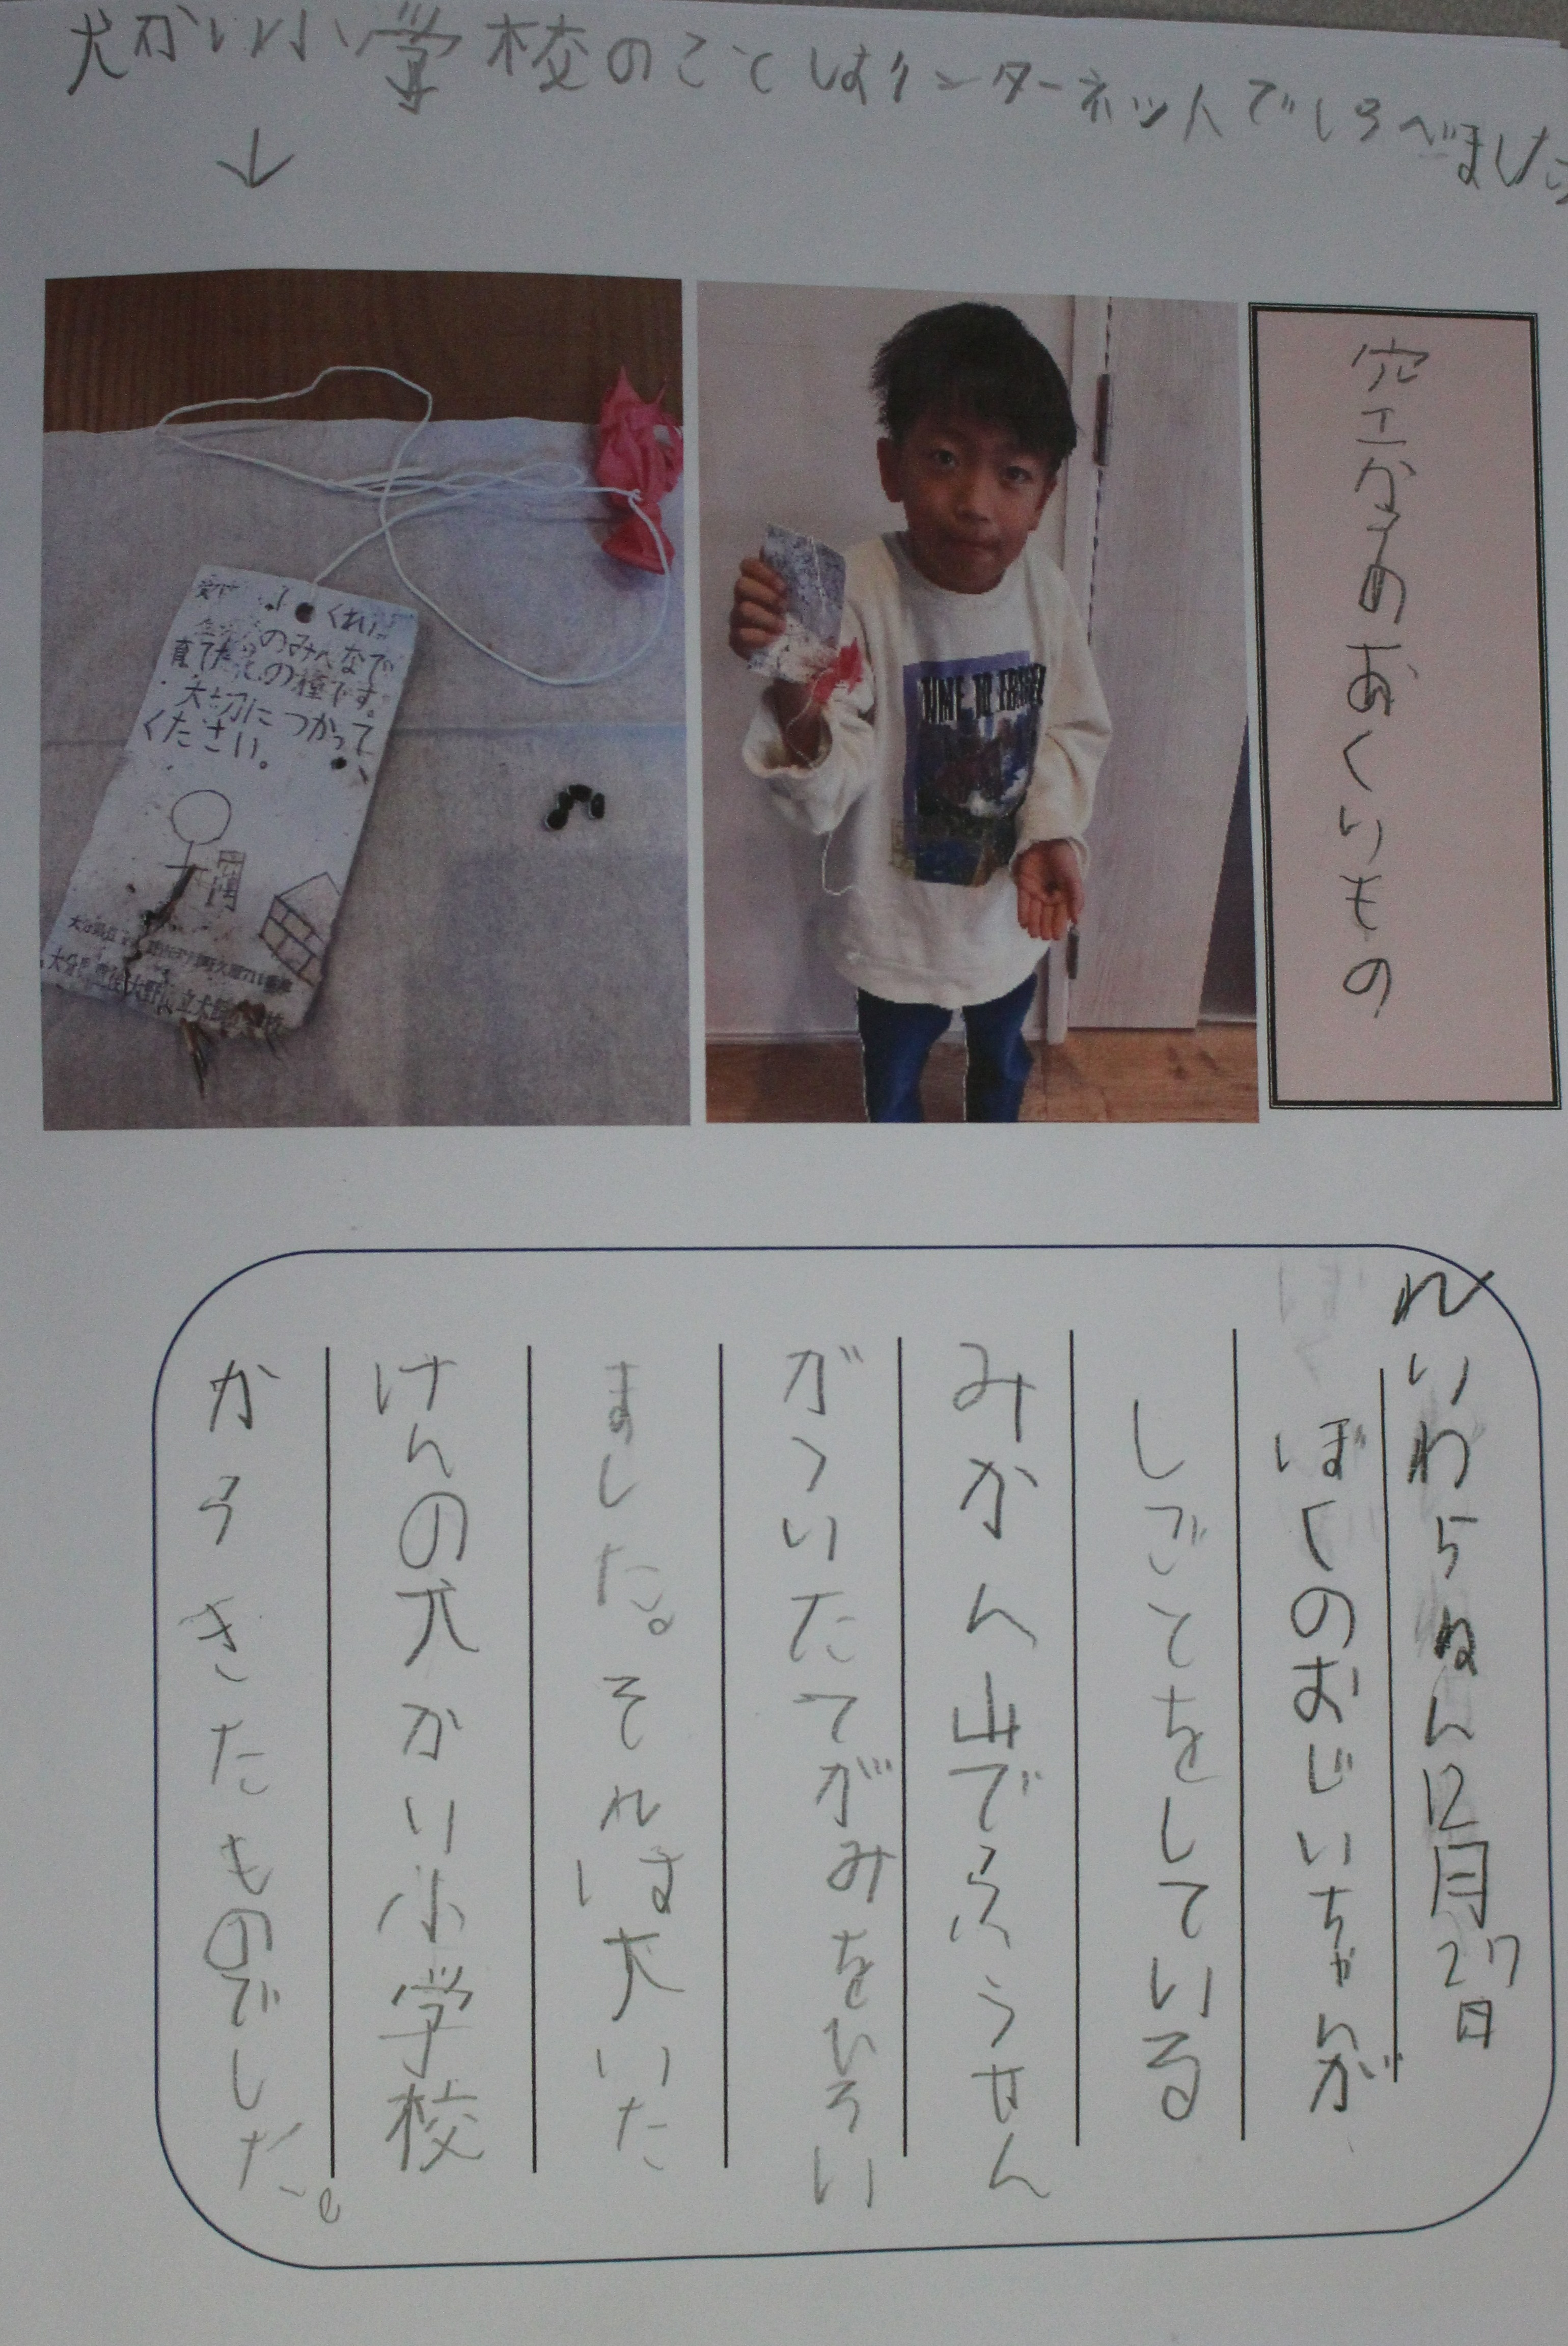 犬かい小学校のことはインターネットでしらべました
↓
空からのおくりもの
のみんなで
育てた花の種です。
大切につかって
ください。
TIME TO TRAVEL
れいわ5ねん12月27日
ぼくのおじいちゃんが
しごとをしている
みかん山でふうせん
がついたてがみをひろい
ました。それは大いた
けんの犬かい小学校
からきたものでした。